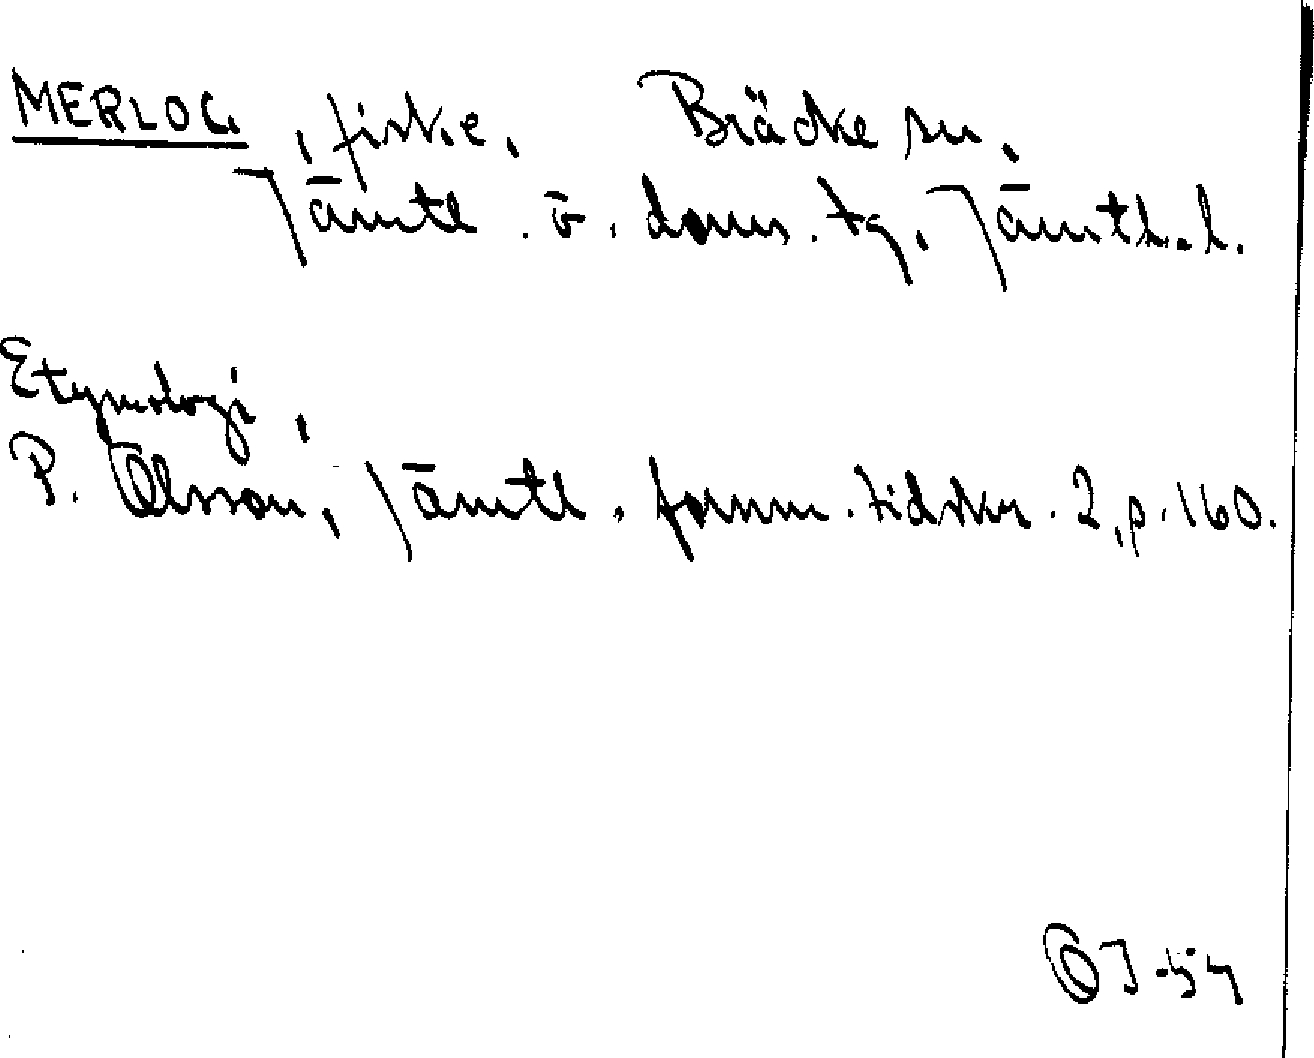 MERLOG, fiske. Bräcke sn,
Jämtl. ö. doms. tg, Jämtl. l.
Etymologi,
P. Olsson, Jämtl. fornm. tidskr. 2, p. 160.
ÖJ-54